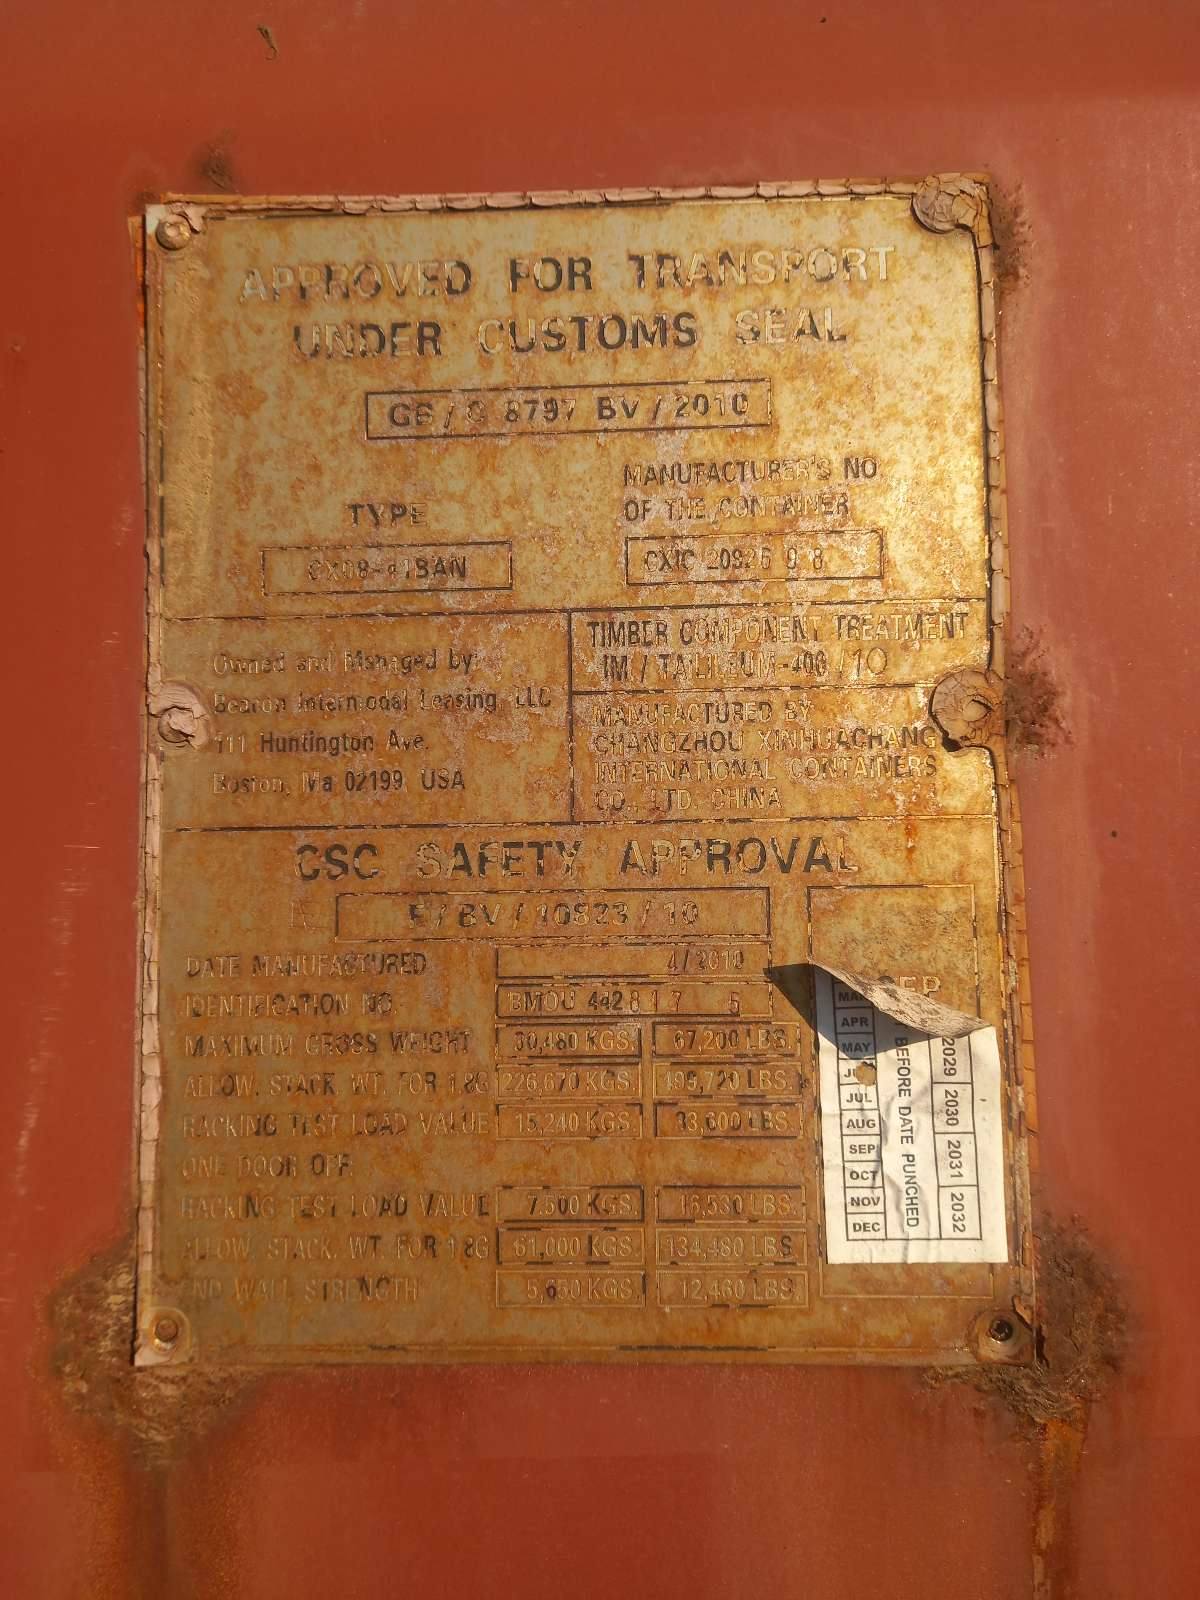 APPROVED FOR TRANSPORT
UNDER CUSTOMS SEAL
GB / C 8797 BV / 2010
TYPE
MANUFACTURER'S NO
OF THE CONTAINER
CX08-41BAN
CXIC 20926 9 8
Owned and Managed by:
Beacon Intermodal Leasing, LLC
111 Huntington Ave.
Boston, Ma 02199, USA
TIMBER COMPONENT TREATMENT
IM / TAILILEUM-400 /10
MANUFACTURED BY
CHANGZHOU XINHUACHANG
INTERNATIONAL CONTAINERS
CO., LTD. CHINA
CSC SAFETY APPROVAL
F / BV / 10823 / 10
DATE MANUFACTURED 4/2010
IDENTIFICATION NO. BMOU 4428 1 7 5
MAXIMUM GROSS WEIGHT 30,480 KGS. 67,200 LBS.
ALLOW. STACK. WT. FOR 1.8G 226,670 KGS. 499,720 LBS.
RACKING TEST LOAD VALUE 15,240 KGS. 33,600 LBS.
ONE DOOR OFF
RACKING TEST LOAD VALUE 7,500 KGS. 16,530 LBS.
ALLOW. STACK. WT. FOR 1.8G 61,000 KGS. 134,480 LBS
END WALL STRENGTH 5,650 KGS. 12,460 LBS.
MAR
APR
MAY
JUL
AUG
SEP
OCT
NOV
DEC
BEFORE DATE PUNCHED
2029 2030 2031 2032